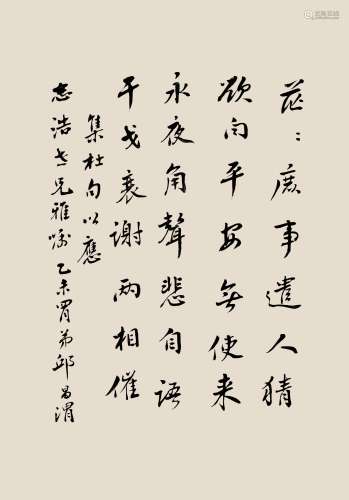 茫〻庶事遣人猜
欲向平安無使来
永夜角聲悲自語
干戈衰謝兩相催
集杜句以應
志浩老兄雅囑 乙未 弟邱昌渭